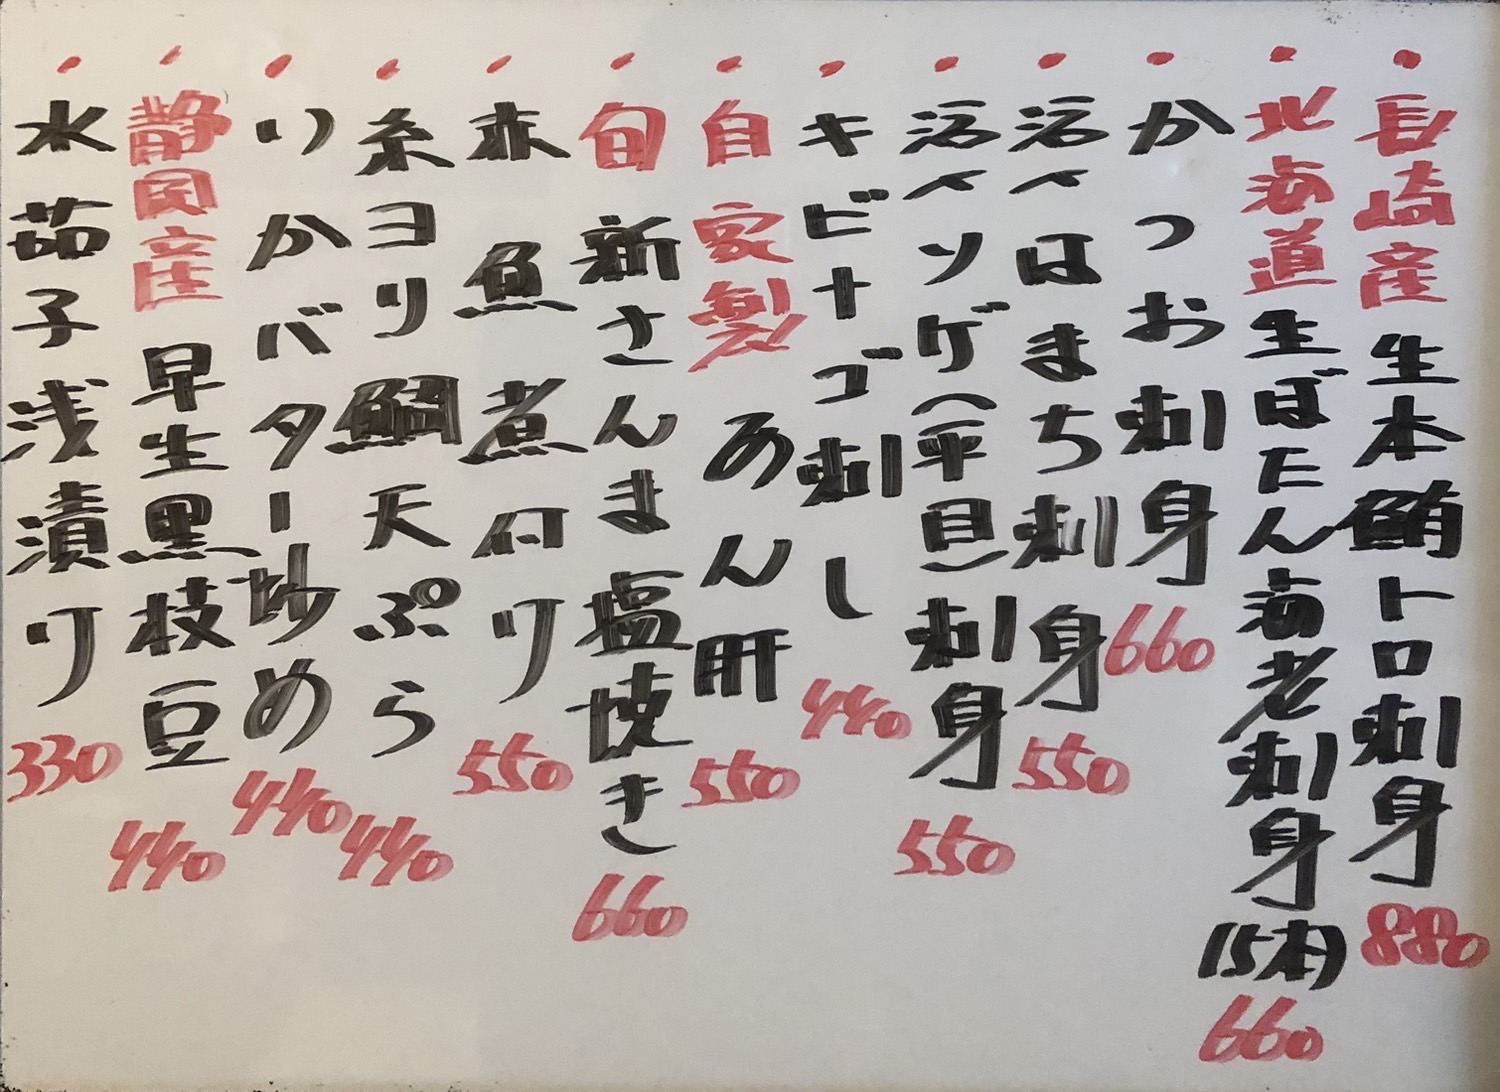 ・長崎産 生本鮪トロ刺身 880
・北海道 生ぼたん海老刺身(5本) 660
・かつお刺身 660
・活〆はまち刺身 550
・活〆ソゲ(平目)刺身 550
・キビナゴ刺し 440
・自家製 あん肝 550
・旬 新さんま塩焼き 660
・赤魚煮付り 550
・糸ヨリ鯛天ぷら 440
・いかバター炒め 440
・静岡産 早生黒枝豆 440
・水茄子浅漬り 330